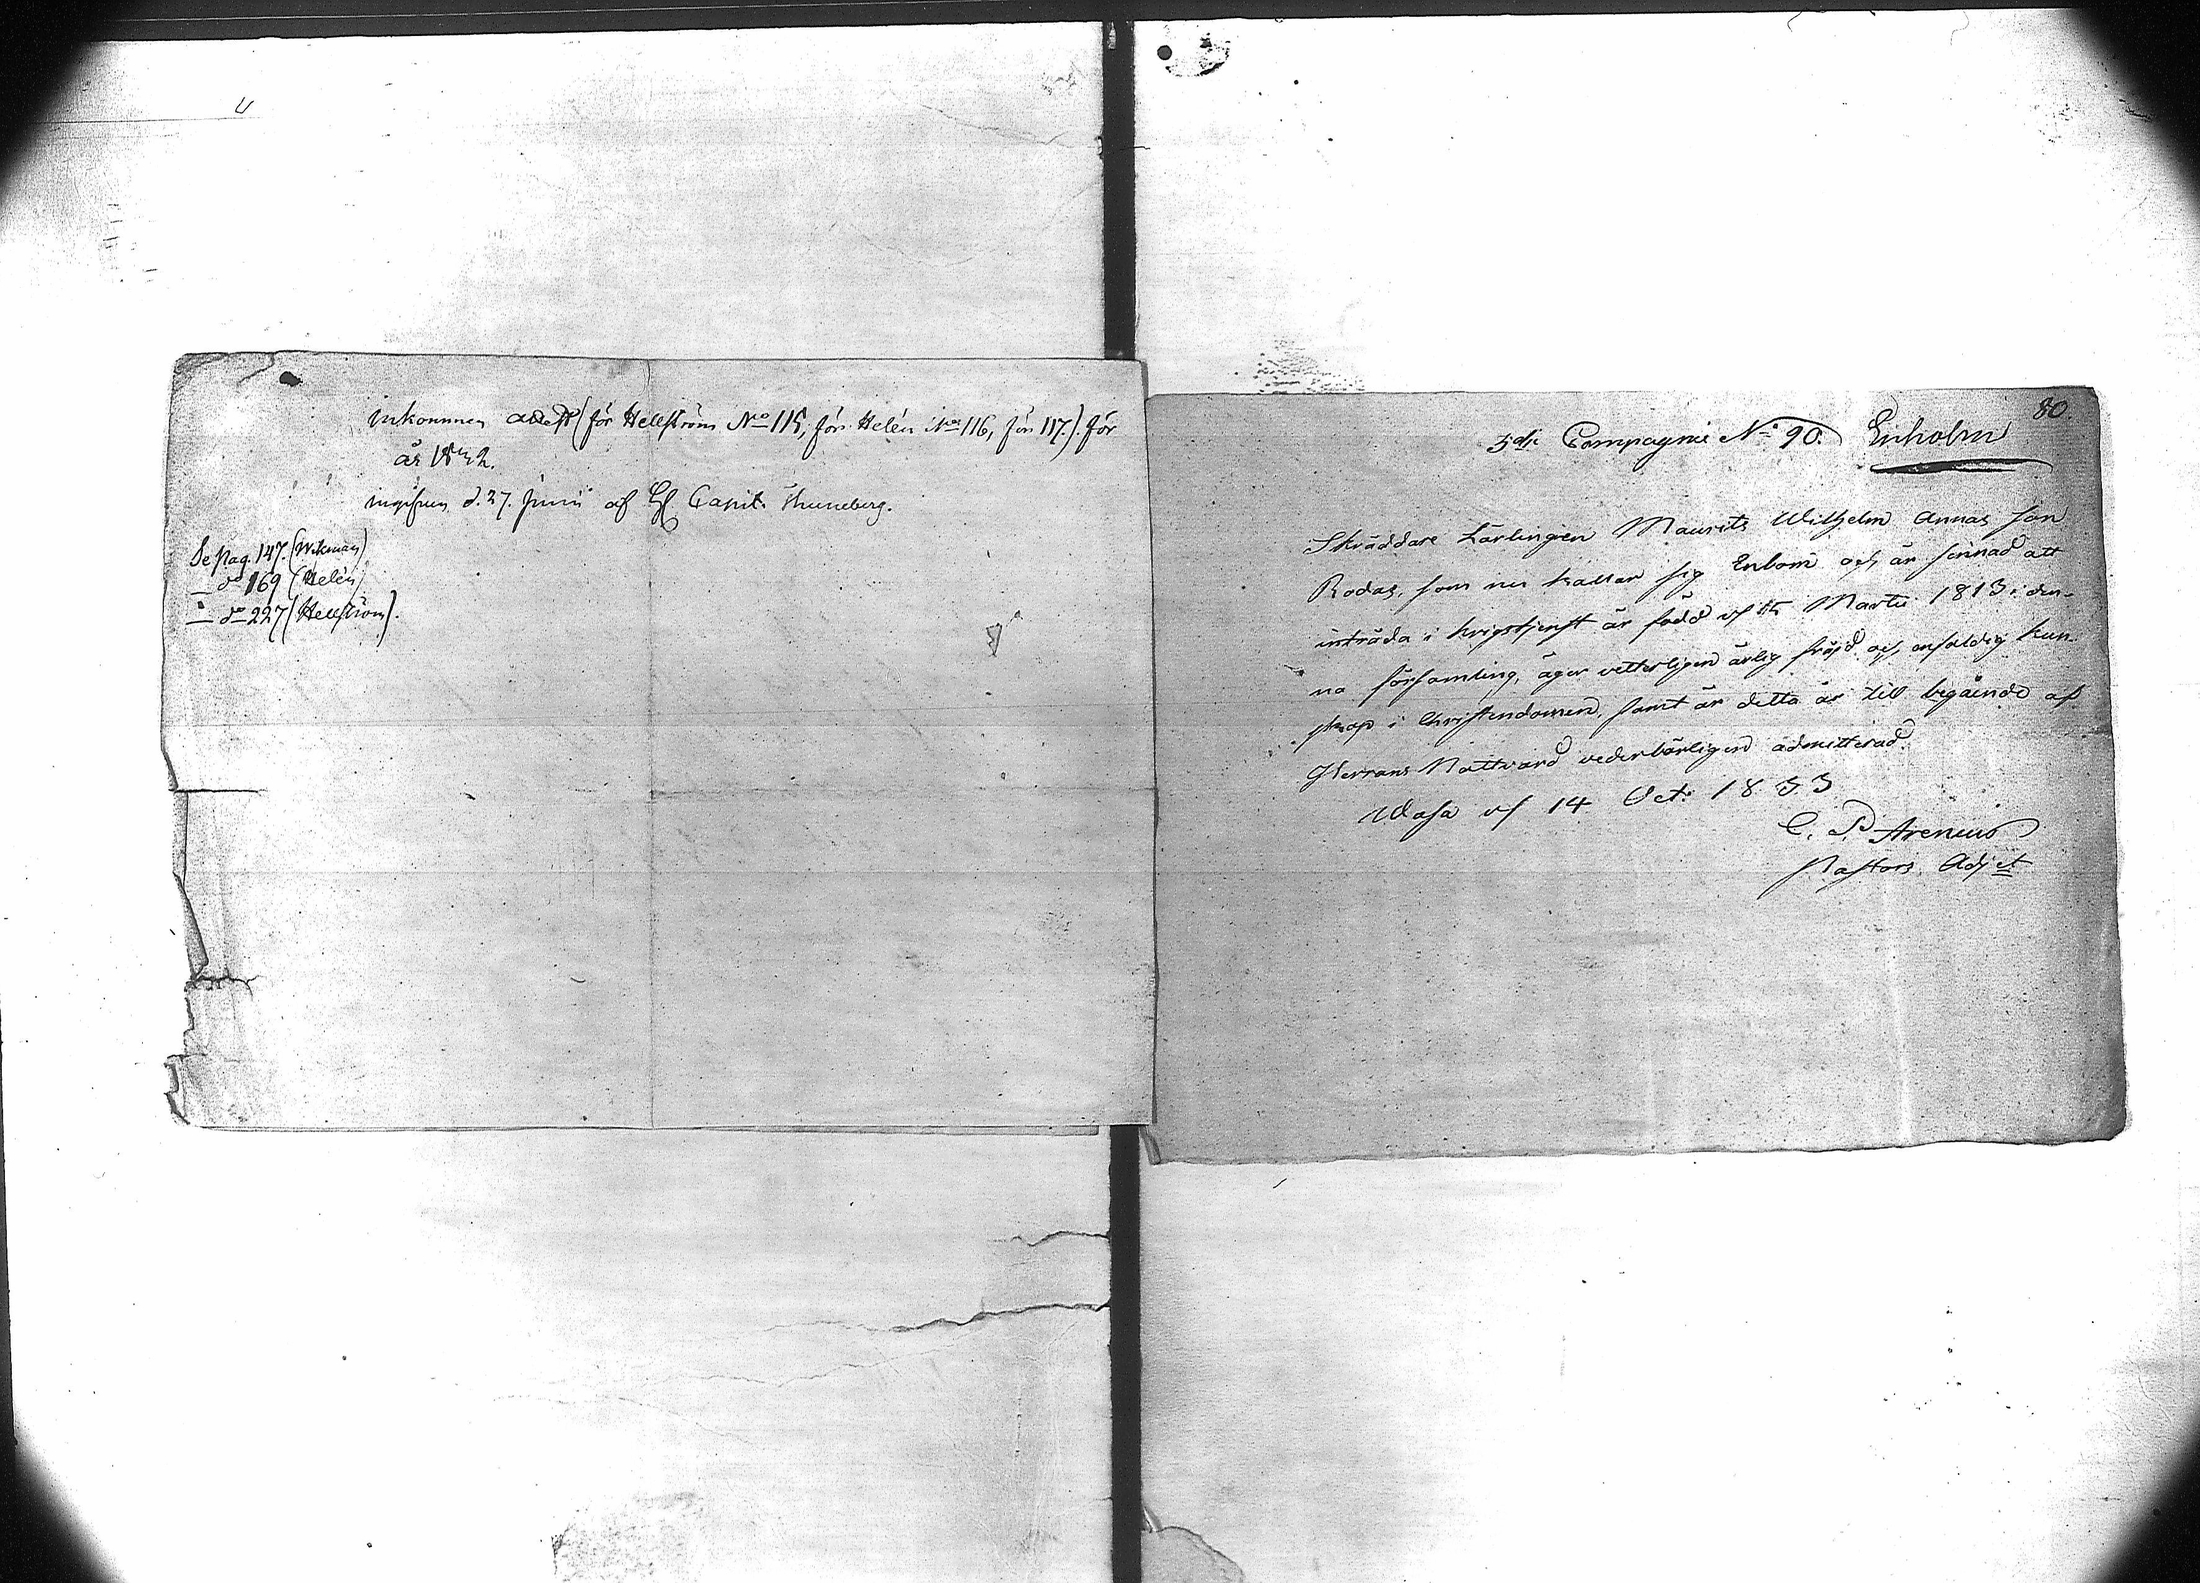 inkommen attest (för Hellström No 115, för Helén No 116, för 117). för
år 1832.
ingifven d. 27. Junii af H Capit. Thuneberg.
Se Pag. 147. (Wikman)
— do 169 (Helén)
— do 227 (Hellström).
80
5dje Compagnie No 90. Enholm
Skräddare Lärlingen Maurits Wilhelm Annas Son
Rodas, som nu kallar sig Enbom och är sinnad att
inträda i krigstjenst är född Martii 1813 i den-
na församling, äger vetterligen ärlig fräjd och enfaldig kun-
skap i Christendomen, samt är detta år till begående af
Herrans Nattvard vederbörligen admitterad.
Wasa 14 Oct. 1833
C. P. Arenius
Pastors Adjct